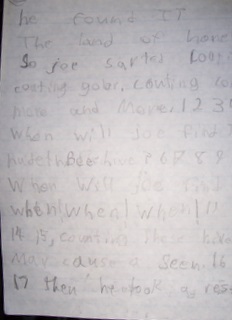 he found IT
The land of hone
So joe sarted Loo
couting goler, couting co
more and More. 1 2 3
When will Joe find
6 7 8 9
When Will joe find
when! when! when!!!
14 15, counting These
May cause a Seen. 16
17 Then he took a res